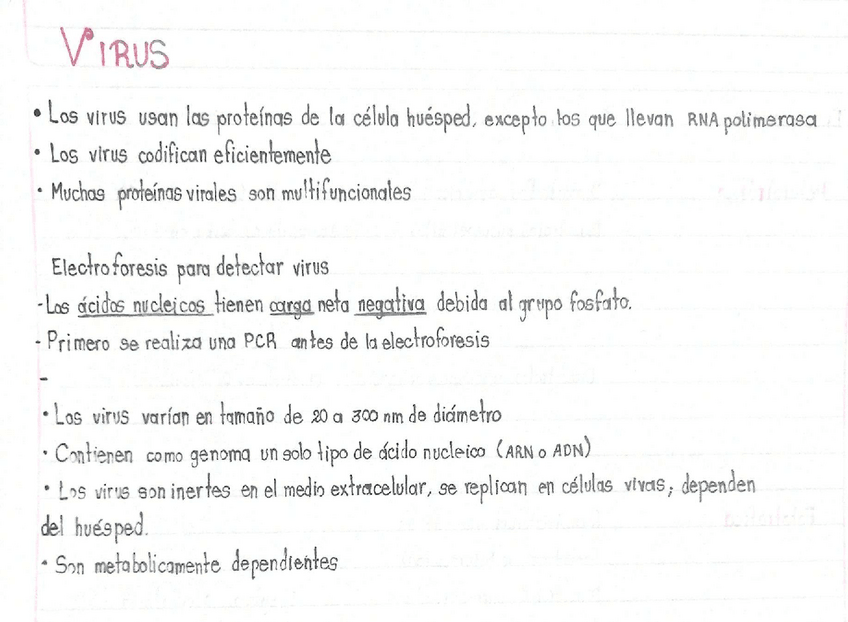 VIRUS
• Los virus usan las proteínas de la célula huésped, excepto los que llevan RNA polimerasa
• Los virus codifican eficientemente
• Muchas proteínas virales son multifuncionales
Electroforesis para detectar virus
-Los ácidos nucleicos tienen carga neta negativa debida al grupo fosfato.
- Primero se realiza una PCR antes de la electroforesis
-
• Los virus varían en tamaño de 20 a 300 nm de diámetro
• Contienen como genoma un solo tipo de ácido nucleico (ARN o ADN)
• Los virus son inertes en el medio extracelular, se replican en células vivas, dependen
del huésped.
• Son metabolicamente dependientes